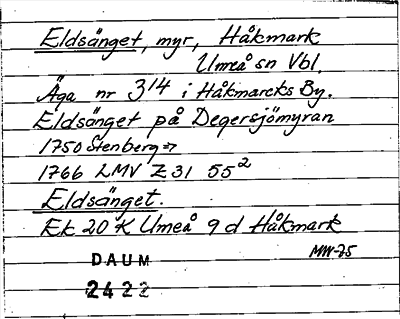 Eldsänget, myr, Håkmark
Umeå sn Vbl
Äga nr 314 i Håkmarcks By.
Eldsänget på Degersjömyran
1750 Stenberg =>
1766 LMV Z 31 55²
Eldsänget.
Ek 20 K Umeå 9 d Håkmark
MW-75
DAUM
2422